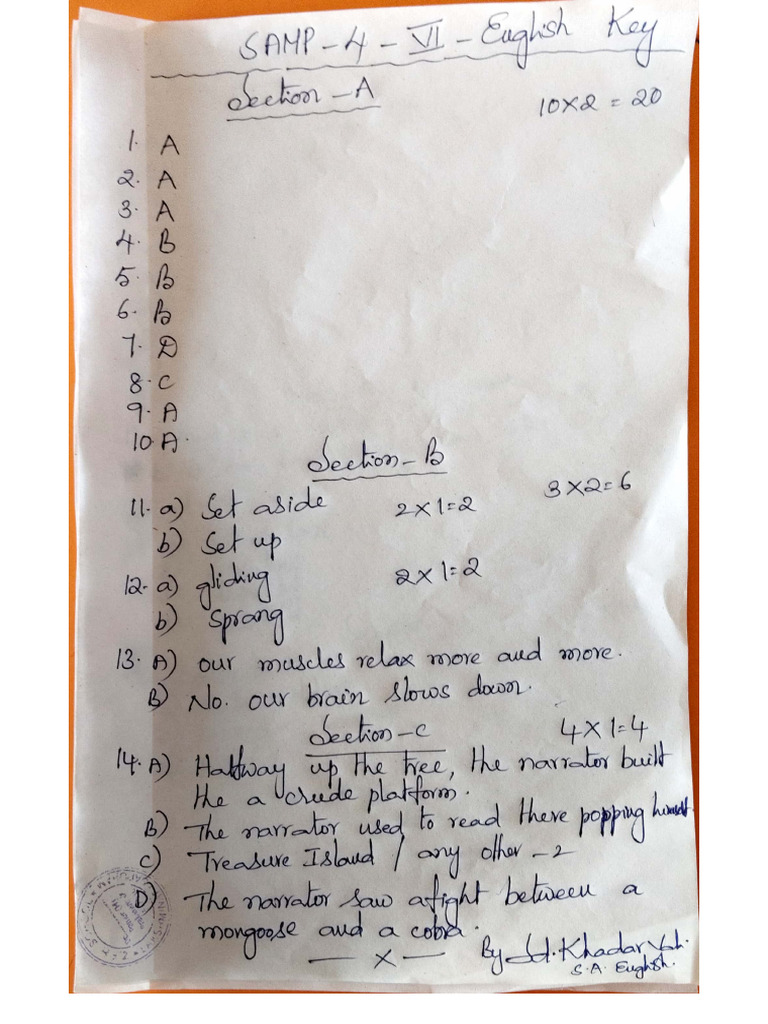 SAMP-4-VI-English Key
Section-A
10×2=20
1. A
2. A
3. A
4. B
5. B
6. B
7. D
8. C
9. A
10. A.
Section-B
3×2=6
11. a) Set aside 2×1=2
b) Set up
12. a) gliding 2×1=2
b) Sprang
13. A) our muscles relax more and more.
B) No. our brain slows down.
Section-C 4×1=4
14. A) Halfway up the tree, the narrator built
the a crude platform.
B) The narrator used to read there popping himself
C) Treasure Island / any other -2
D) The narrator saw a fight between a
mongoose and a cobra.
— × —
By Khadar
S.A. English.